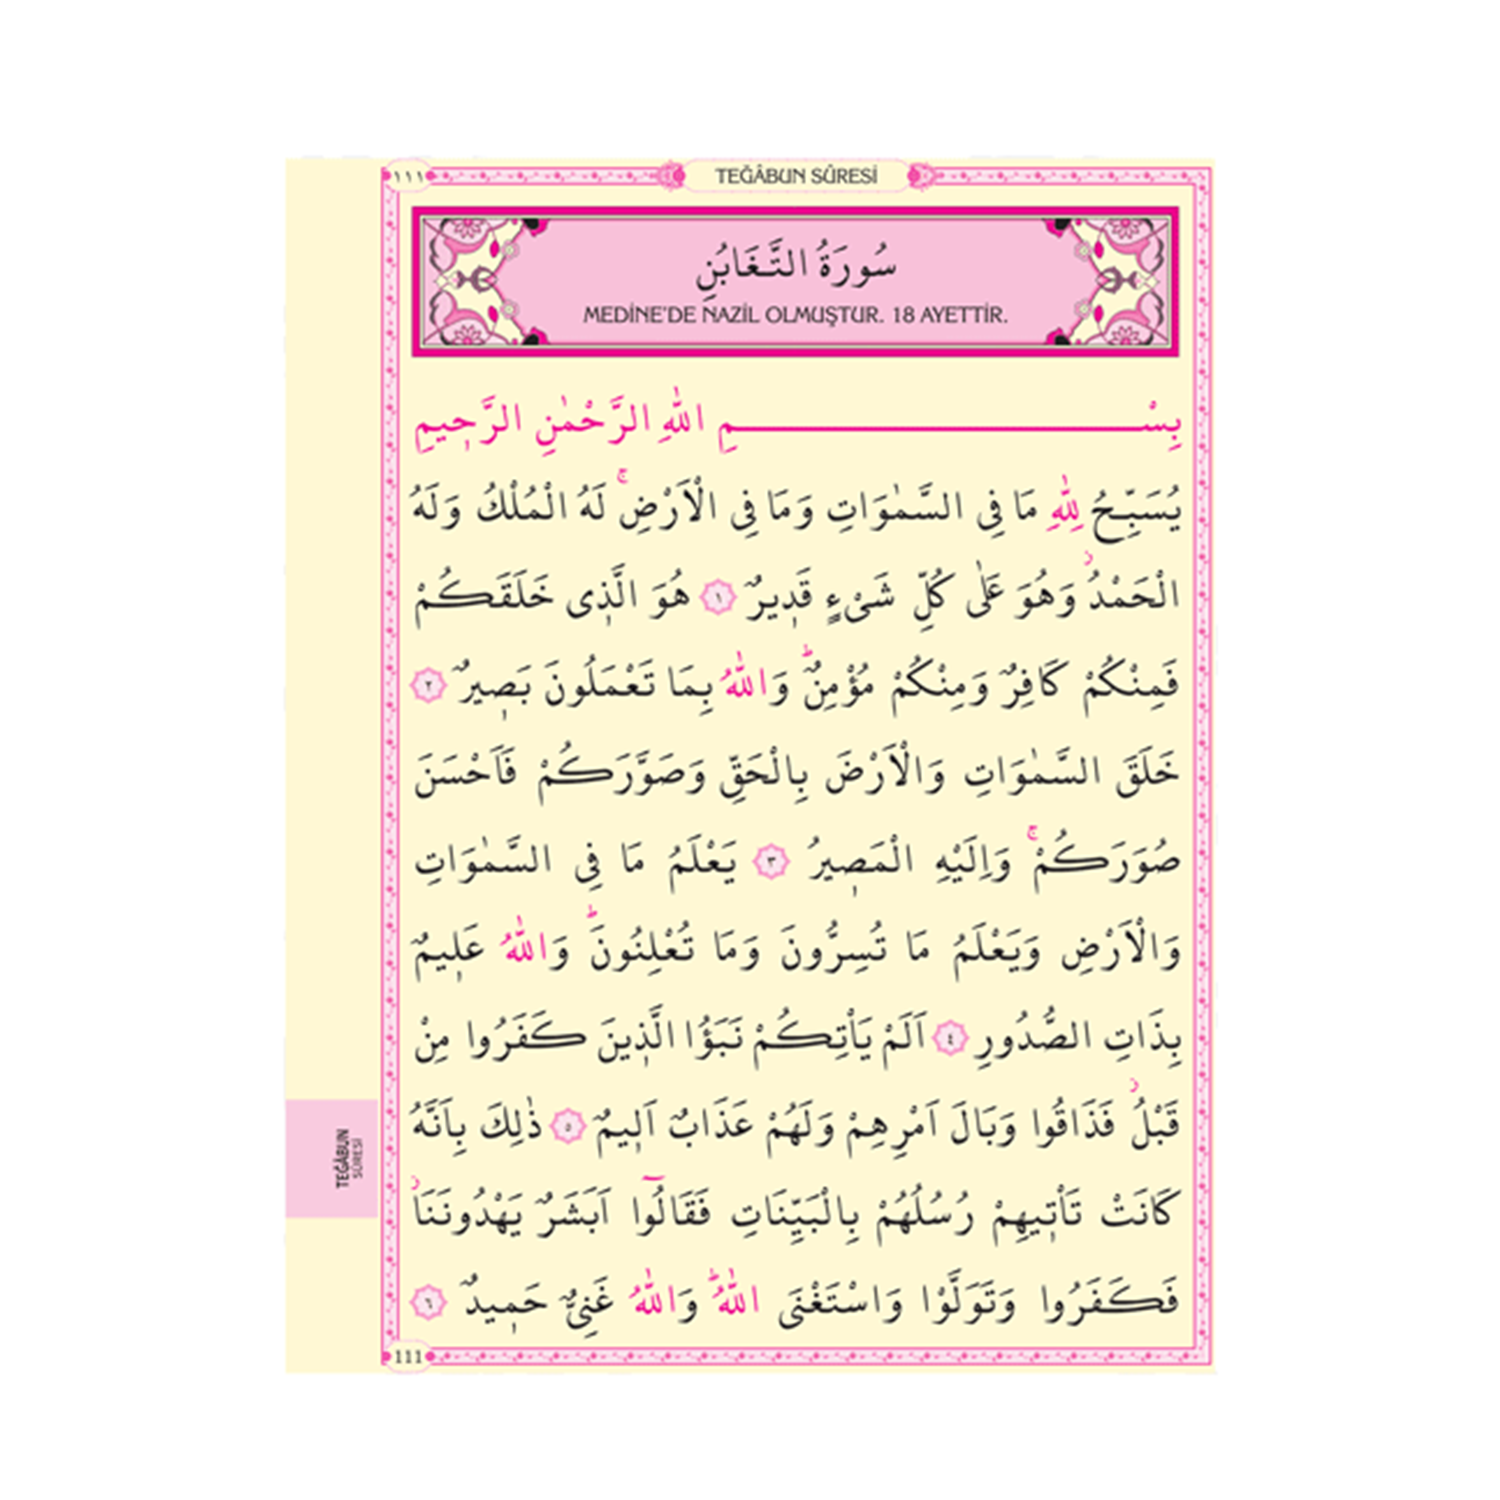 ١١١
TEĞÂBUN SÛRESİ
سُورَةُ التَّغَابُنِ
MEDİNE'DE NAZİL OLMUŞTUR. 18 AYETTİR.
بِسْمِ اللّٰهِ الرَّحْمٰنِ الرَّحٖيمِ
يُسَبِّحُ لِلّٰهِ مَا فِى السَّمٰوَاتِ وَمَا فِى الْاَرْضِۚ لَهُ الْمُلْكُ وَلَهُ
الْحَمْدُؗ وَهُوَ عَلٰى كُلِّ شَىْءٍ قَدٖيرٌ ١ هُوَ الَّذٖى خَلَقَكُمْ
فَمِنْكُمْ كَافِرٌ وَمِنْكُمْ مُؤْمِنٌؕ وَاللّٰهُ بِمَا تَعْمَلُونَ بَصٖيرٌ ٢
خَلَقَ السَّمٰوَاتِ وَالْاَرْضَ بِالْحَقِّ وَصَوَّرَكُمْ فَاَحْسَنَ
صُوَرَكُمْۚ وَاِلَيْهِ الْمَصٖيرُ ٣ يَعْلَمُ مَا فِى السَّمٰوَاتِ
وَالْاَرْضِ وَيَعْلَمُ مَا تُسِرُّونَ وَمَا تُعْلِنُونَؕ وَاللّٰهُ عَلٖيمٌ
بِذَاتِ الصُّدُورِ ٤ اَلَمْ يَاْتِكُمْ نَبَؤُا الَّذٖينَ كَفَرُوا مِنْ
قَبْلُؗ فَذَاقُوا وَبَالَ اَمْرِهِمْ وَلَهُمْ عَذَابٌ اَلٖيمٌ ٥ ذٰلِكَ بِاَنَّهُ
كَانَتْ تَاْتٖيهِمْ رُسُلُهُمْ بِالْبَيِّنَاتِ فَقَالُٓوا اَبَشَرٌ يَهْدُونَنَاؗ
فَكَفَرُوا وَتَوَلَّوْا وَاسْتَغْنَى اللّٰهُؕ وَاللّٰهُ غَنِىٌّ حَمٖيدٌ ٦
TEĞÂBUN
SÛRESİ
111